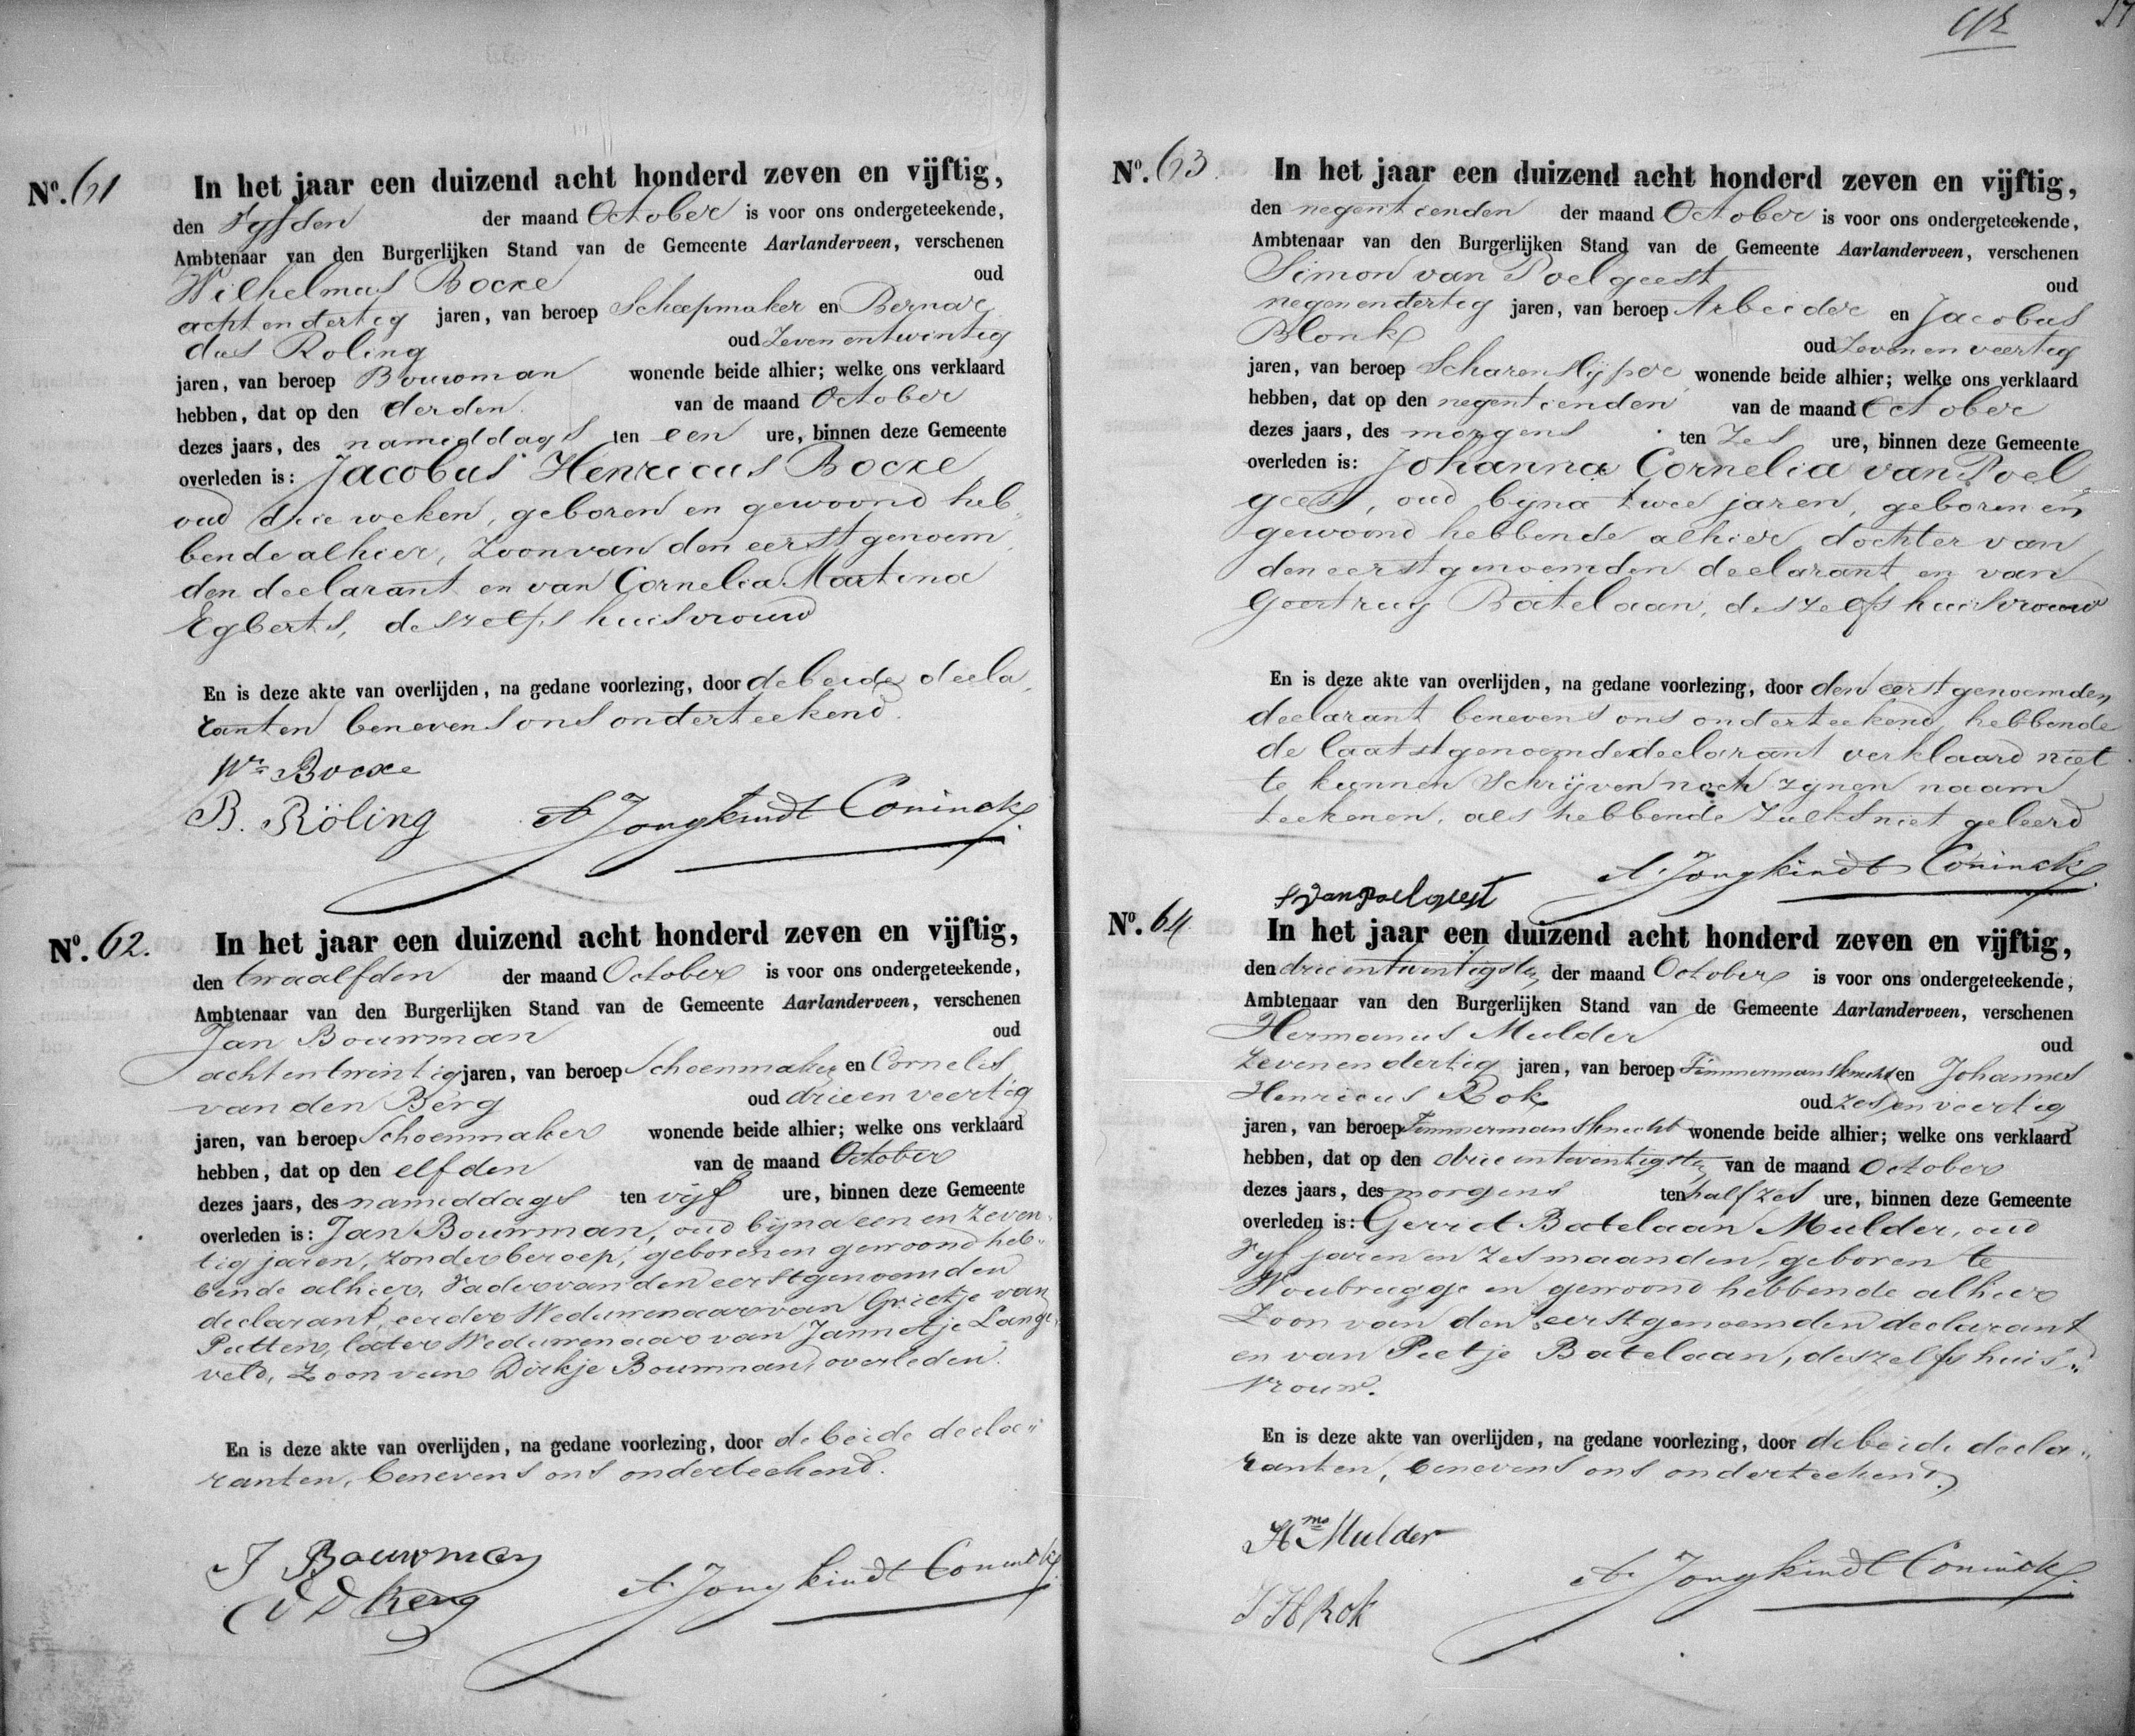 No. 61
In het jaar een duizend acht honderd zeven en vijftig,
den Vyfden der maand October is voor ons ondergeteekende,
Ambtenaar van den Burgerlijken Stand van de Gemeente Aarlanderveen, verschenen
Wilhelmus Bocxe oud
acht en dertig jaren, van beroep Scheepmaker en Bernar
dus Roling oud Zeven en twintig
jaren, van beroep Bouwman wonende beide alhier; welke ons verklaard
hebben, dat op den derden van de maand October
dezes jaars, des namiddags ten een ure, binnen deze Gemeente
overleden is: Jacobus Henricus Bocxe
oud drie weken, geboren en gewoond heb„
bende alhier, Zoon van den eerstgenoem„
den declarant en van Cornelia Martina
Egberts, deszelfs huisvrouw
En is deze akte van overlijden, na gedane voorlezing, door de beide decla„
ranten benevens ons onderteekend.
Wm Bocxe
B. Röling A Jongkindt Coninck
No. 62.
In het jaar een duizend acht honderd zeven en vijftig,
den twaalfden der maand October is voor ons ondergeteekende,
Ambtenaar van den Burgerlijken Stand van de Gemeente Aarlanderveen, verschenen
Jan Bouwman oud
acht en twintig jaren, van beroep Schoenmaker en Cornelis
van den Berg oud drie en veertig
jaren, van beroep Schoenmaker wonende beide alhier; welke ons verklaard
hebben, dat op den elfden van de maand October
dezes jaars, des namiddags ten vijf ure, binnen deze Gemeente
overleden is: Jan Bouwman, oud bijna een en zeven„
tig jaren, zonder beroep, geboren en gewoond heb„
bende alhier, Vader van den eerstgenoemden
declarant, eerder Weduwenaar van Grietje van
Putten, later Weduwenaar van Jannetje Lange„
veld, Zoon van Dirkje Bouwman, overleden.
En is deze akte van overlijden, na gedane voorlezing, door de beide decla„
ranten, benevens ons onderteekend.
J Bouwman
Berg A Jongkindt Coninck
No. 63.
In het jaar een duizend acht honderd zeven en vijftig,
den negentienden der maand October is voor ons ondergeteekende,
Ambtenaar van den Burgerlijken Stand van de Gemeente Aarlanderveen, verschenen
Simon van Poelgeest oud
negen en dertig jaren, van beroep Arbeider en Jacobus
Blonk oud Zeven en veertig
jaren, van beroep Scharenslyper wonende beide alhier; welke ons verklaard
hebben, dat op den negentienden van de maand October
dezes jaars, des morgens ten Zes ure, binnen deze Gemeente
overleden is: Johanna Cornelia van Poel
geest, oud byna twee jaren, geboren en
gewoond hebbende alhier, dochter van
den eerstgenoemden declarant en van
Geertruy Batelaan, deszelfs huisvrouw
En is deze akte van overlijden, na gedane voorlezing, door den eerstgenoemden
declarant benevens ons onderteekend, hebbende
de laatstgenoemde declarant verklaard niet
te kunnen schrijven noch zynen naam
teekenen, als hebbende Zulks niet geleerd
A Jongkindt Coninck
S van Poelgeest
No. 64
In het jaar een duizend acht honderd zeven en vijftig,
den drie en twintigsten der maand October is voor ons ondergeteekende,
Ambtenaar van den Burgerlijken Stand van de Gemeente Aarlanderveen, verschenen
Hermanus Mulder oud
Zeven en dertig jaren, van beroep Timmermansknecht en Johannes
Henricus Rok oud zes en veertig
jaren, van beroep Timmermansknecht wonende beide alhier; welke ons verklaard
hebben, dat op den drie en twintigsten van de maand October
dezes jaars, des morgens ten half zes ure, binnen deze Gemeente
overleden is: Gerrit Batelaan Mulder, oud
Vyf jaren en zes maanden, geboren te
Woubrugge en gewoond hebbende alhier
Zoon van den eerstgenoemden declarant
en van Pietje Batelaan, deszelfs huis„
vrouw.
En is deze akte van overlijden, na gedane voorlezing, door de beide decla„
ranten, benevens ons onderteekend.
Hms Mulder
J H Rok A Jongkindt Coninck